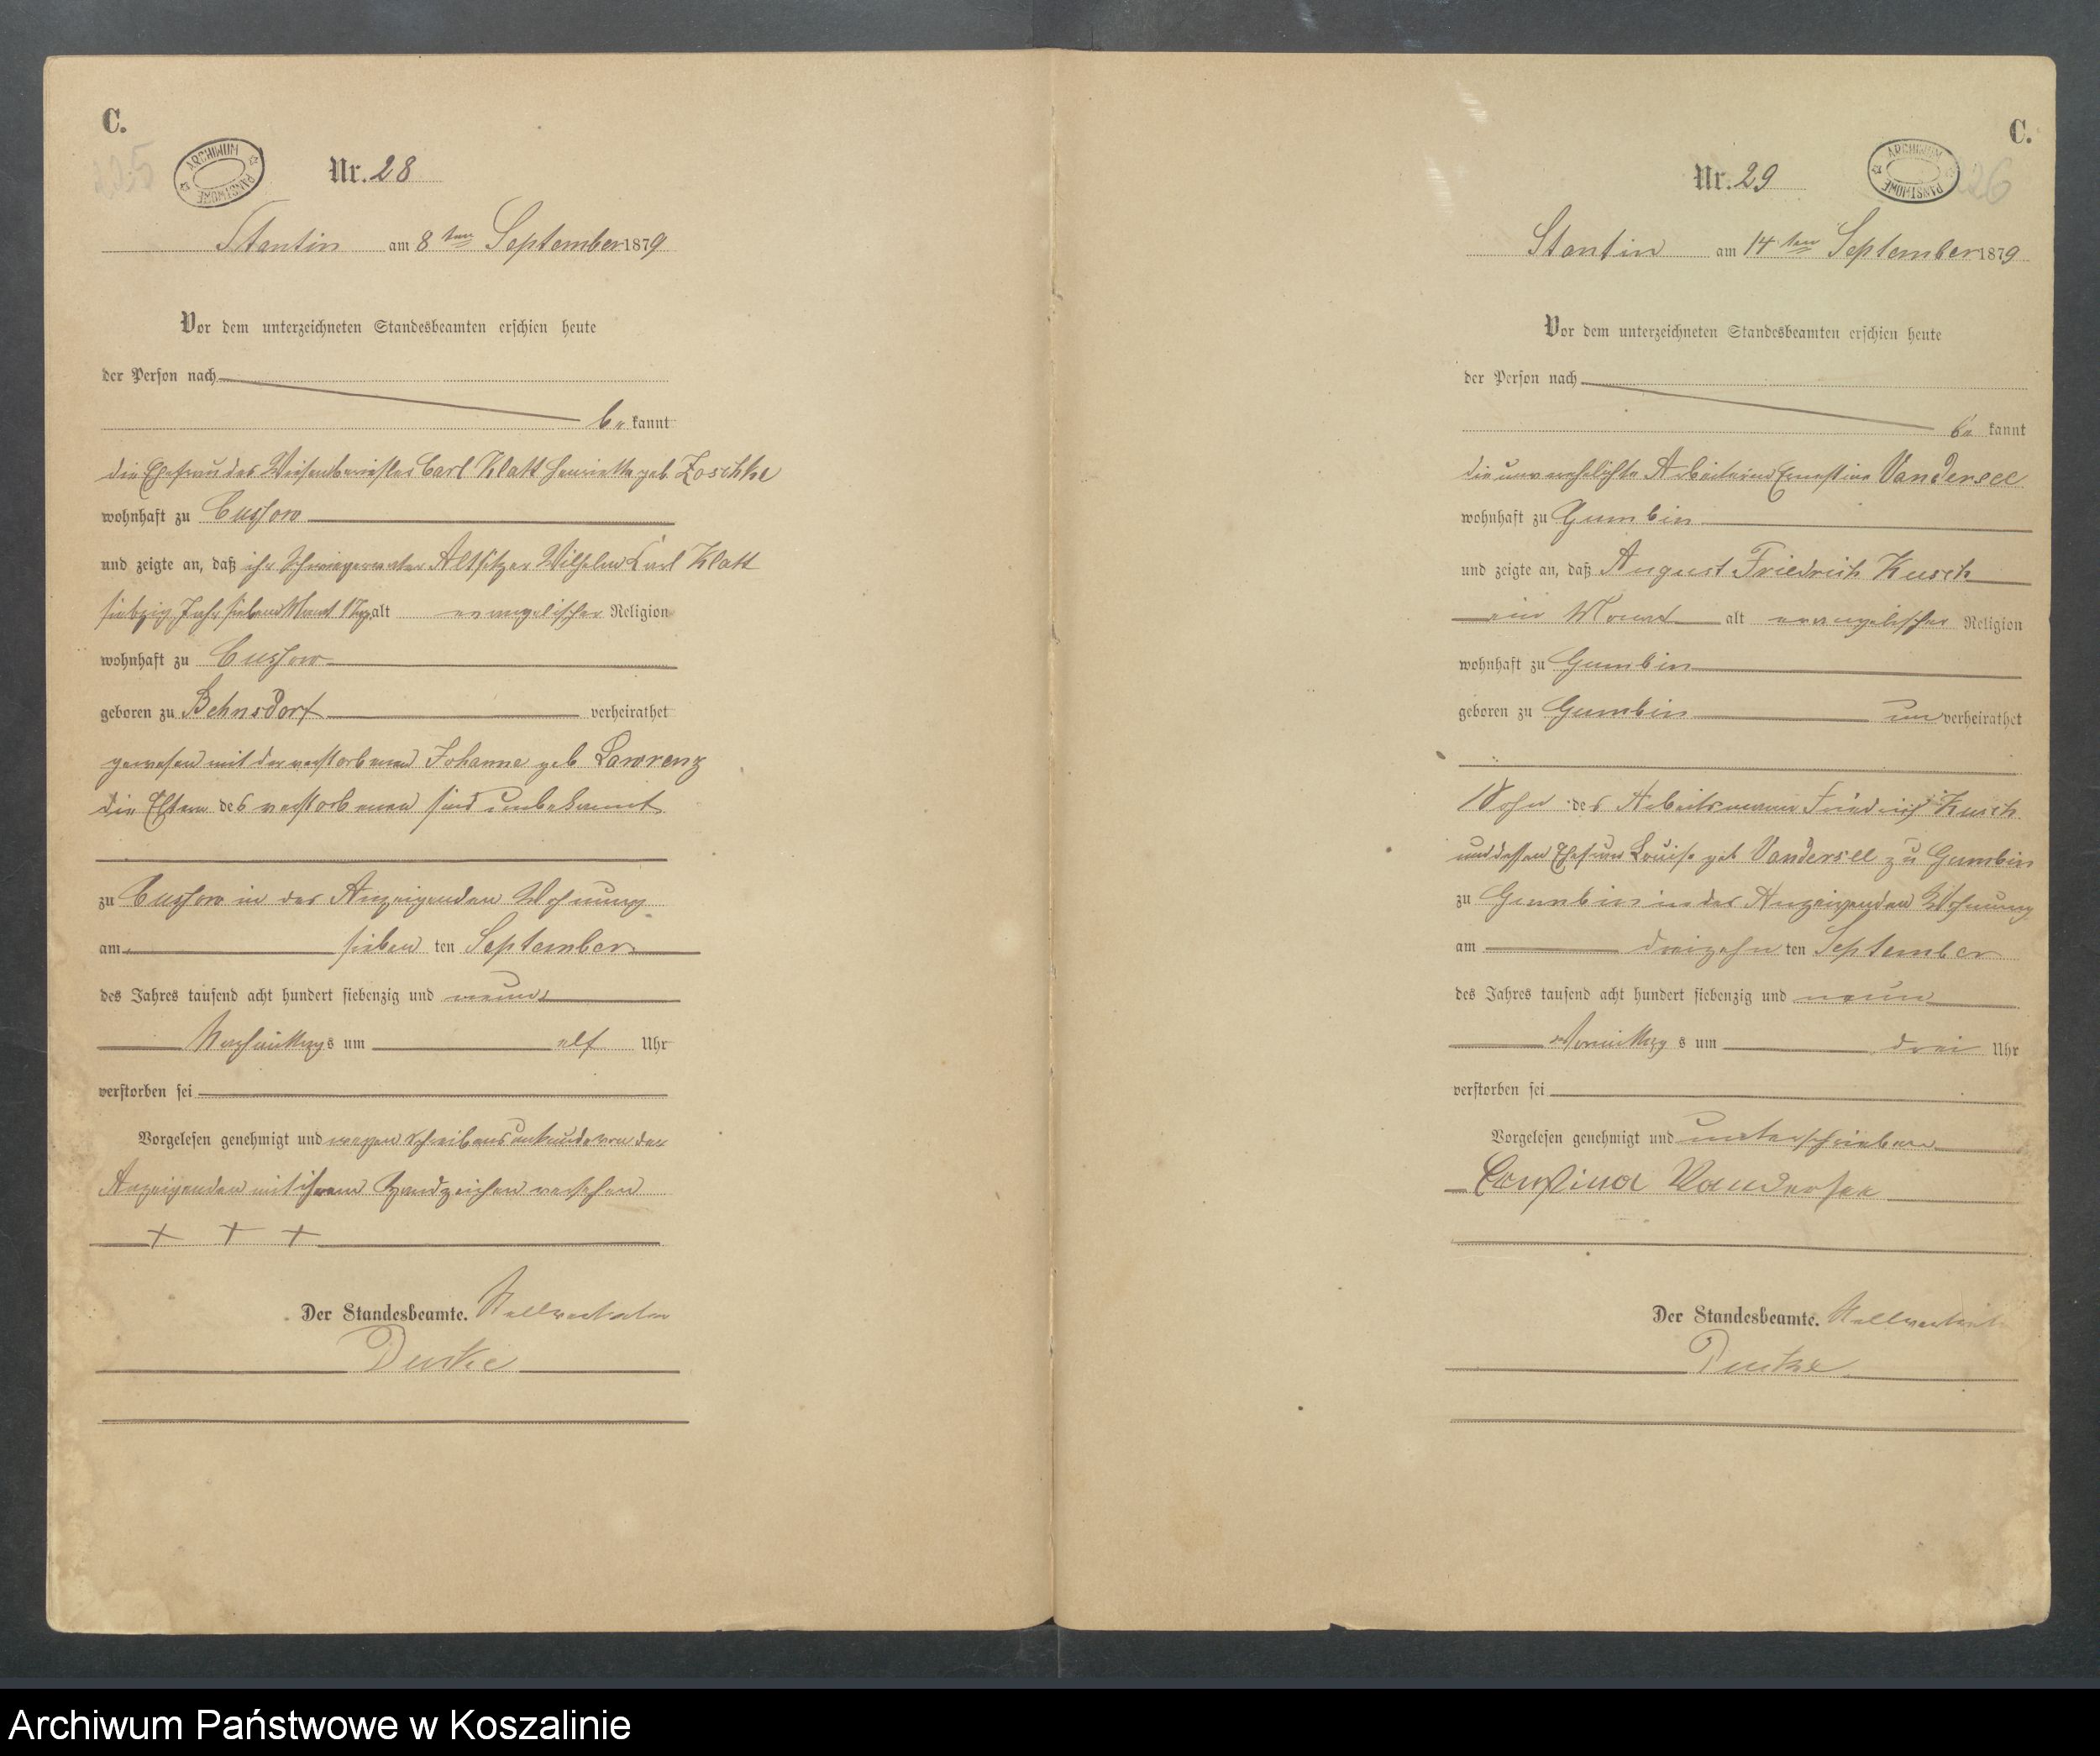 C.
225
ARCHIWUM PAŃSTWOWE
Nr. 28
Stantin am 8 ten September 1879
Vor dem unterzeichneten Standesbeamten erschien heute
der Person nach
be kannt
die Ehefrau des Carl Klatt Henriette geb Zoschke
wohnhaft zu Cussow
und zeigte an, daß ihr Schwiegervater Altsitzer Wilhelm Carl Klatt
siebzig Jahr sieben Monat alt evangelischer Religion
wohnhaft zu Cussow
geboren zu Behnsdorf verheirathet
gewesen mit der verstorbenen Johanne geb Lawrenz
die Eltern des verstorbenen sind unbekannt
zu Cussow in der Anzeigenden Wohnung
am sieben ten September
des Jahres tausend acht hundert siebenzig und neun
Nachmittags um elf Uhr
verstorben sei
Vorgelesen genehmigt und wegen Schreibensunkunde von der
Anzeigenden mit ihrem Handzeichen versehen
+ + +
Der Standesbeamte. Stellvertreter
C.
226
ARCHIWUM PAŃSTWOWE
Nr. 29
Stantin am 14 ten September 1879
Vor dem unterzeichneten Standesbeamten erschien heute
der Person nach
be kannt
die unverehelichte Arbeiterin Ernestine Vandersee
wohnhaft zu Gumbin
und zeigte an, daß August Friedrich Kusch
ein Monat alt evangelischer Religion
wohnhaft zu Gumbin
geboren zu Gumbin un verheirathet
Sohn des Arbeitsmann Friedrich Kusch
und dessen Ehefrau Louise geb Vandersee zu Gumbin
zu Gumbin in der Anzeigenden Wohnung
am dreizehn ten September
des Jahres tausend acht hundert siebenzig und neun
Vormittags um drei Uhr
verstorben sei
Vorgelesen genehmigt und unterschrieben
Vandersee
Der Standesbeamte. Stellvertreter
Archiwum Państwowe w Koszalinie